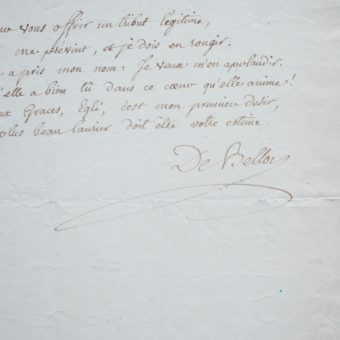 vous offrir un tribut légitime,
me prévint, et je dois en rougir.
a pris mon nom: Je veux m'en applaudir.
qu'elle a bien lû dans ce cœur qu'elle anime!
aux Graces, Eglé, c'est mon premier desir,
plus beau laurier doit être votre estime.
De Belloy